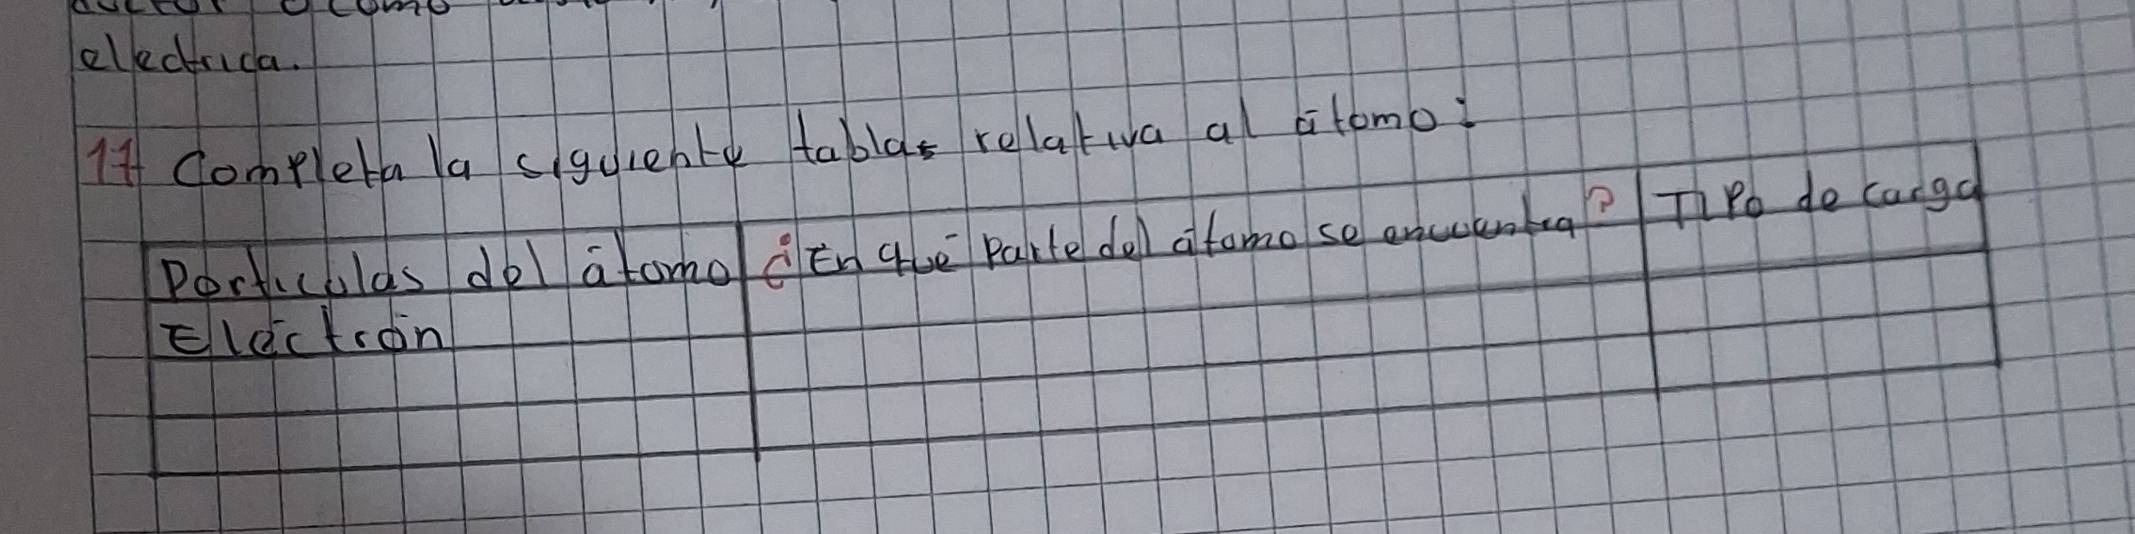 electrica.
17 Completa la siguiente tablas relativa al átomo:
Particulas del átomo ¿En qué parte del átomo se encuentra? Tipo de carga
Eléctrón